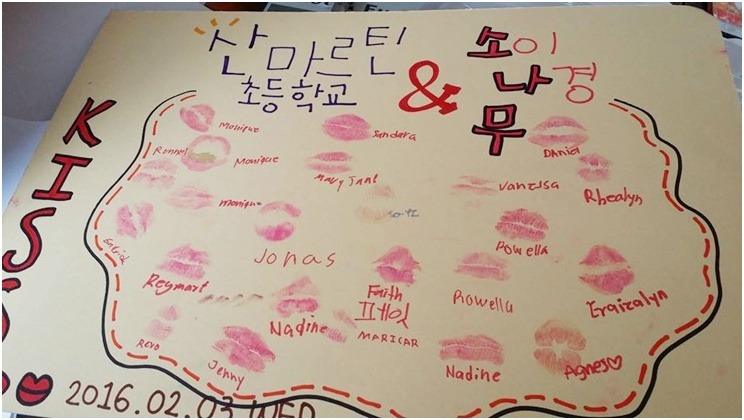 산마르틴
초등학교
&
소나무
이경
KISS
Monique
Sandara
Dania
Ronnel
Monique
Mary Jane
Vanessa
Rhealyn
Monique
Rowella
Jonas
Reymart
Faith
Rowella
Eraizalyn
Nadine
MARICAR
Jenny
Nadine
Agnes♡
2016.02.03 WED